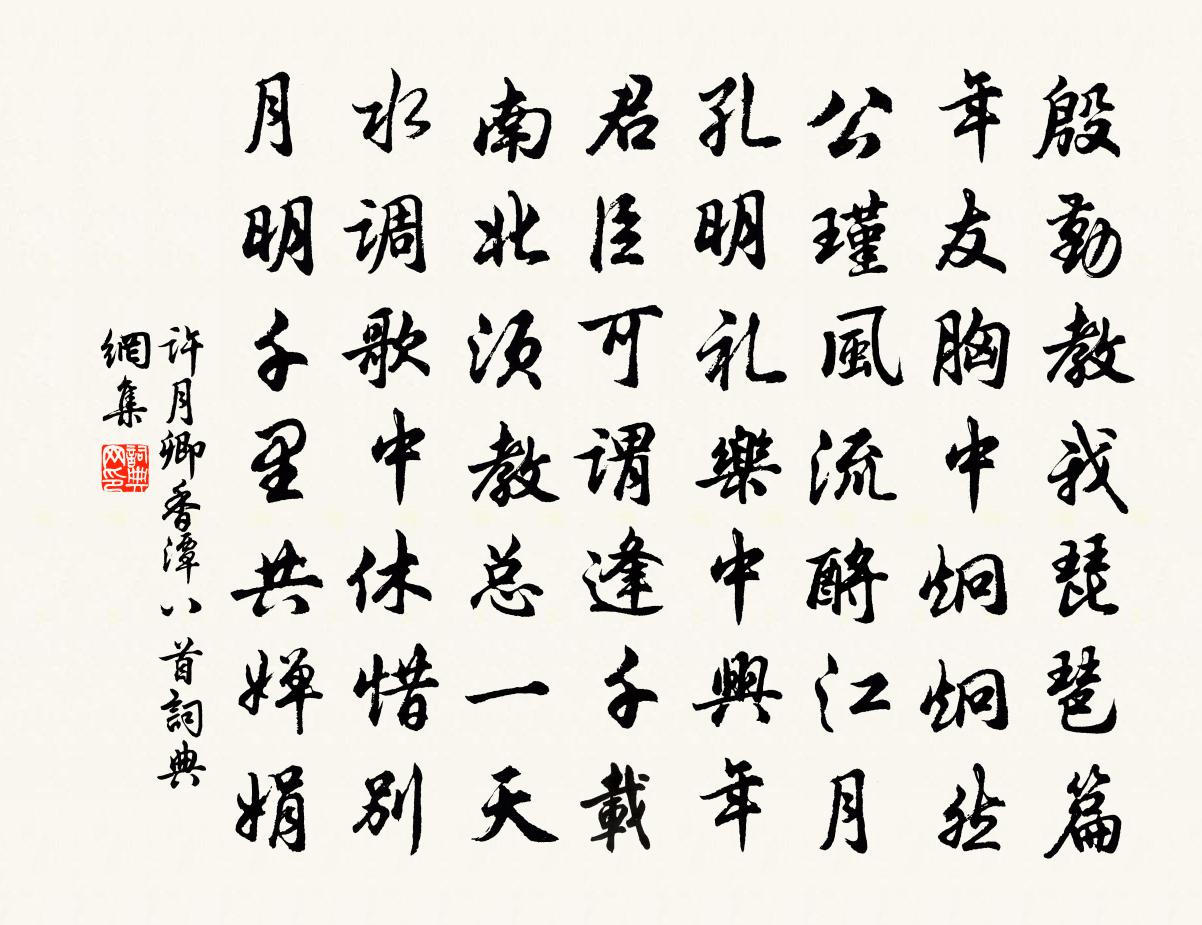 殷勤教我琵琶篇
年友胸中炯炯然
公瑾風流酹江月
孔明礼樂中興年
君臣可謂逢千載
南北須教总一天
水调歌中休惜别
月明千里共婵娟
许月卿香潭八首詞典
網集
詞典网印